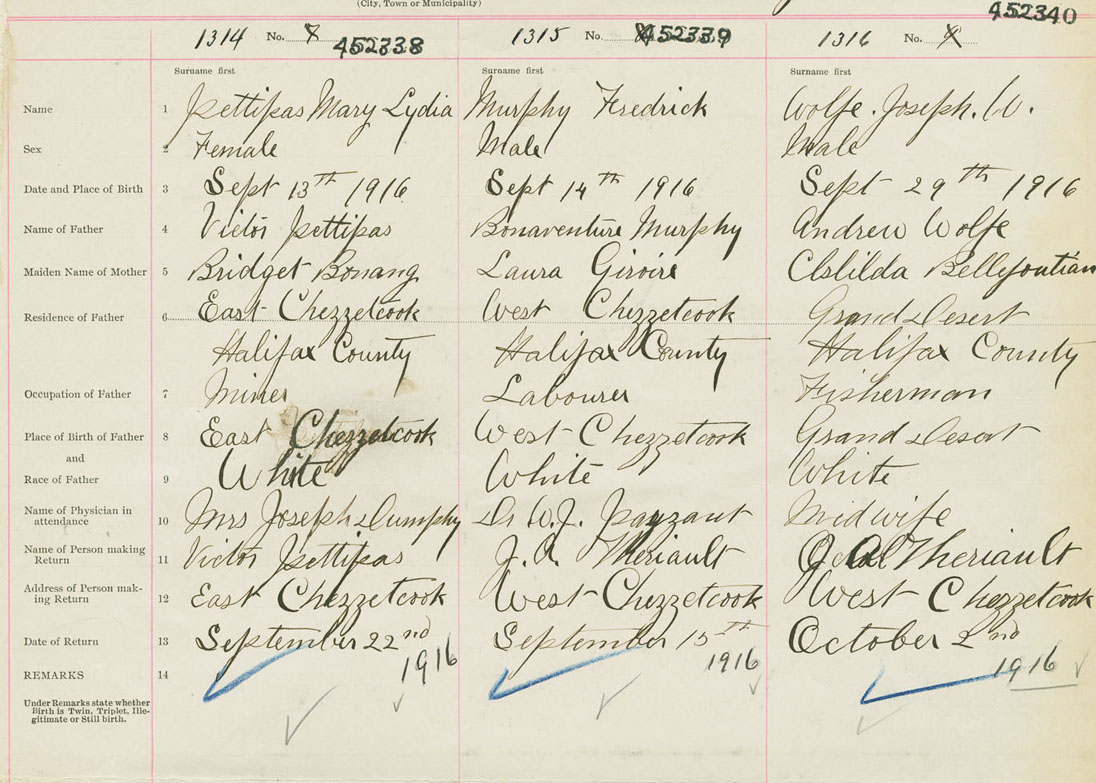 (City, Town or Municipality)
452340
1314 No. 7 452338 1315 No. 452339 1316 No.
Surname first Surname first Surname first
Name 1 Pettipas Mary Lydia Murphy Fredrick Wolfe. Joseph. W.
Sex 2 Female Male Male
Date and Place of Birth 3 Sept 13th 1916 Sept 14th 1916 Sept 29th 1916
Name of Father 4 Victor Pettipas Bonaventure Murphy Andrew Wolfe
Maiden Name of Mother 5 Bridget Bonang Laura Giroire Bellefontian
Residence of Father 6 East Chezzetcook West Chezzetcook Grand Desert
Halifax County Halifax County Halifax County
Occupation of Father 7 Miner Labourer Fisherman
Place of Birth of Father 8 East Chezzetcook West Chezzetcook Grand Desert
and
Race of Father 9 White White White
Name of Physician in
attendance 10 Mrs Joseph Dumphy Dr W. J. Payzant Midwife
Name of Person making
Return 11 Victor Pettipas J. A. Theriault Theriault
Address of Person mak-
ing Return 12 East Chezzetcook West Chezzetcook West Chezzetcook
Date of Return 13 September 22nd September 15th October 2nd
1916 1916 1916
REMARKS 14
Under Remarks state whether
Birth is Twin, Triplet, Ille-
gitimate or Still birth.